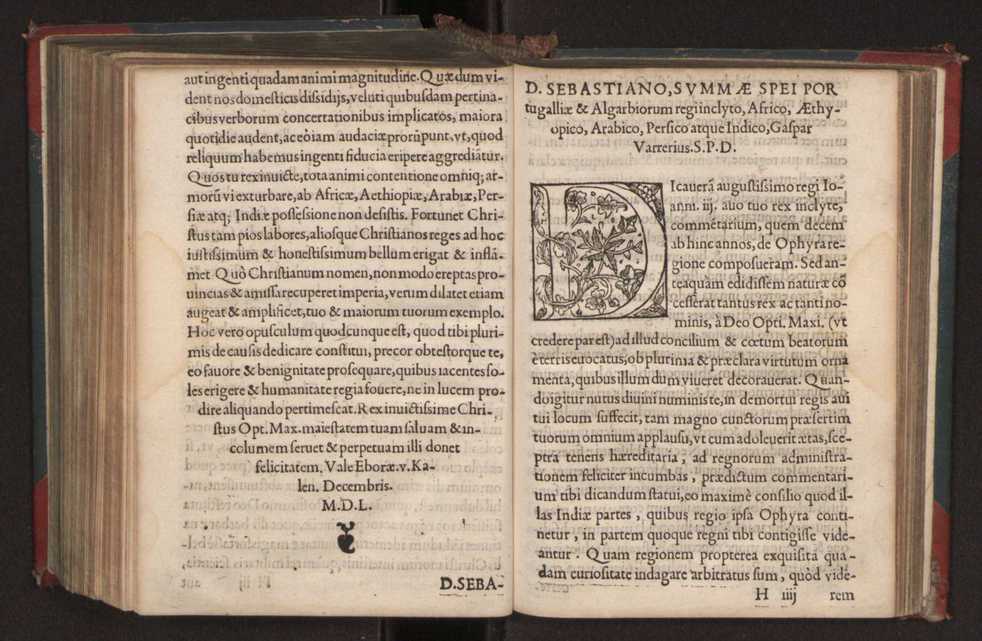 aut ingenti quadam animi magnitudine. Quæ dum vi-
dent nos domesticis dissidijs, veluti quibusdam pertina-
cibus verborum concertationibus implicatos, maiora
quotidie audent, ac eò iam audaciæ prorũpunt, vt, quod
reliquum habemus ingenti fiducia eripere aggrediãtur.
Quos tu rex inuicte, tota animi contentione omniq; ar-
morũ vi exturbare, ab Africæ, Aethiopiæ, Arabiæ, Per-
siæ atq; Indiæ possessione non desistis. Fortunet Chri-
stus tam pios labores, aliosque Christianos reges ad hoc
iustissimum & honestissimum bellum erigat & inflã-
met. Quò Christianum nomen, non modo ereptas pro-
uincias & amissa recuperet imperia, verum dilatet etiam
augeat & amplificet, tuo & maiorum tuorum exemplo.
Hoc vero opusculum quodcunque est, quod tibi pluri-
mis de causis dedicare constitui, precor obtestorque te,
eo fauore & benignitate prosequare, quibus iacentes so-
les erigere & humanitate regia fouere, ne in lucem pro-
dire aliquando pertimescat. Rex inuictissime Chri-
stus Opt. Max. maiestatem tuam saluam & in-
columem seruet & perpetuam illi donet
felicitatem. Vale Eboræ. v. Ka-
len. Decembris.
M.D.L.
D. SEBA-
D. SEBASTIANO, SVMMÆ SPEI POR
tugalliæ & Algarbiorum regi inclyto, Africo, Æthy-
opico, Arabico, Persico atque Indico, Gaspar
Varrerius. S.P.D.
DIcauerã augustissimo regi Io-
anni. iij. auo tuo rex inclyte,
commẽtarium, quem decem
ab hinc annos, de Ophyra re-
gione composueram. Sed an-
tea quàm edidissem naturæ cõ
cesserat tantus rex ac tanti no-
minis, à Deo Opti. Maxi. (vt
credere par est) ad illud concilium & cœtum beatorum
è terris euocatus, ob plurima & præclara virtutum orna
menta, quibus illum dum viueret decorauerat. Quan-
do igitur nutus diuini numinis te, in demortui regis aui
tui locum suffecit, tam magno cunctorum præsertim
tuorum omnium applausu, vt cum adoleuerit ætas, sce-
ptra tenens hæreditaria, ad regnorum administra-
tionem feliciter incumbas, prædictum commentari-
um tibi dicandum statui, eo maximè consilio quod il-
las Indiæ partes, quibus regio ipsa Ophyra conti-
netur, in partem quoque regni tibi contigisse vide-
antur. Quam regionem propterea exquisita qua-
dam curiositate indagare arbitratus sum, quòd vide-
H iiij rem